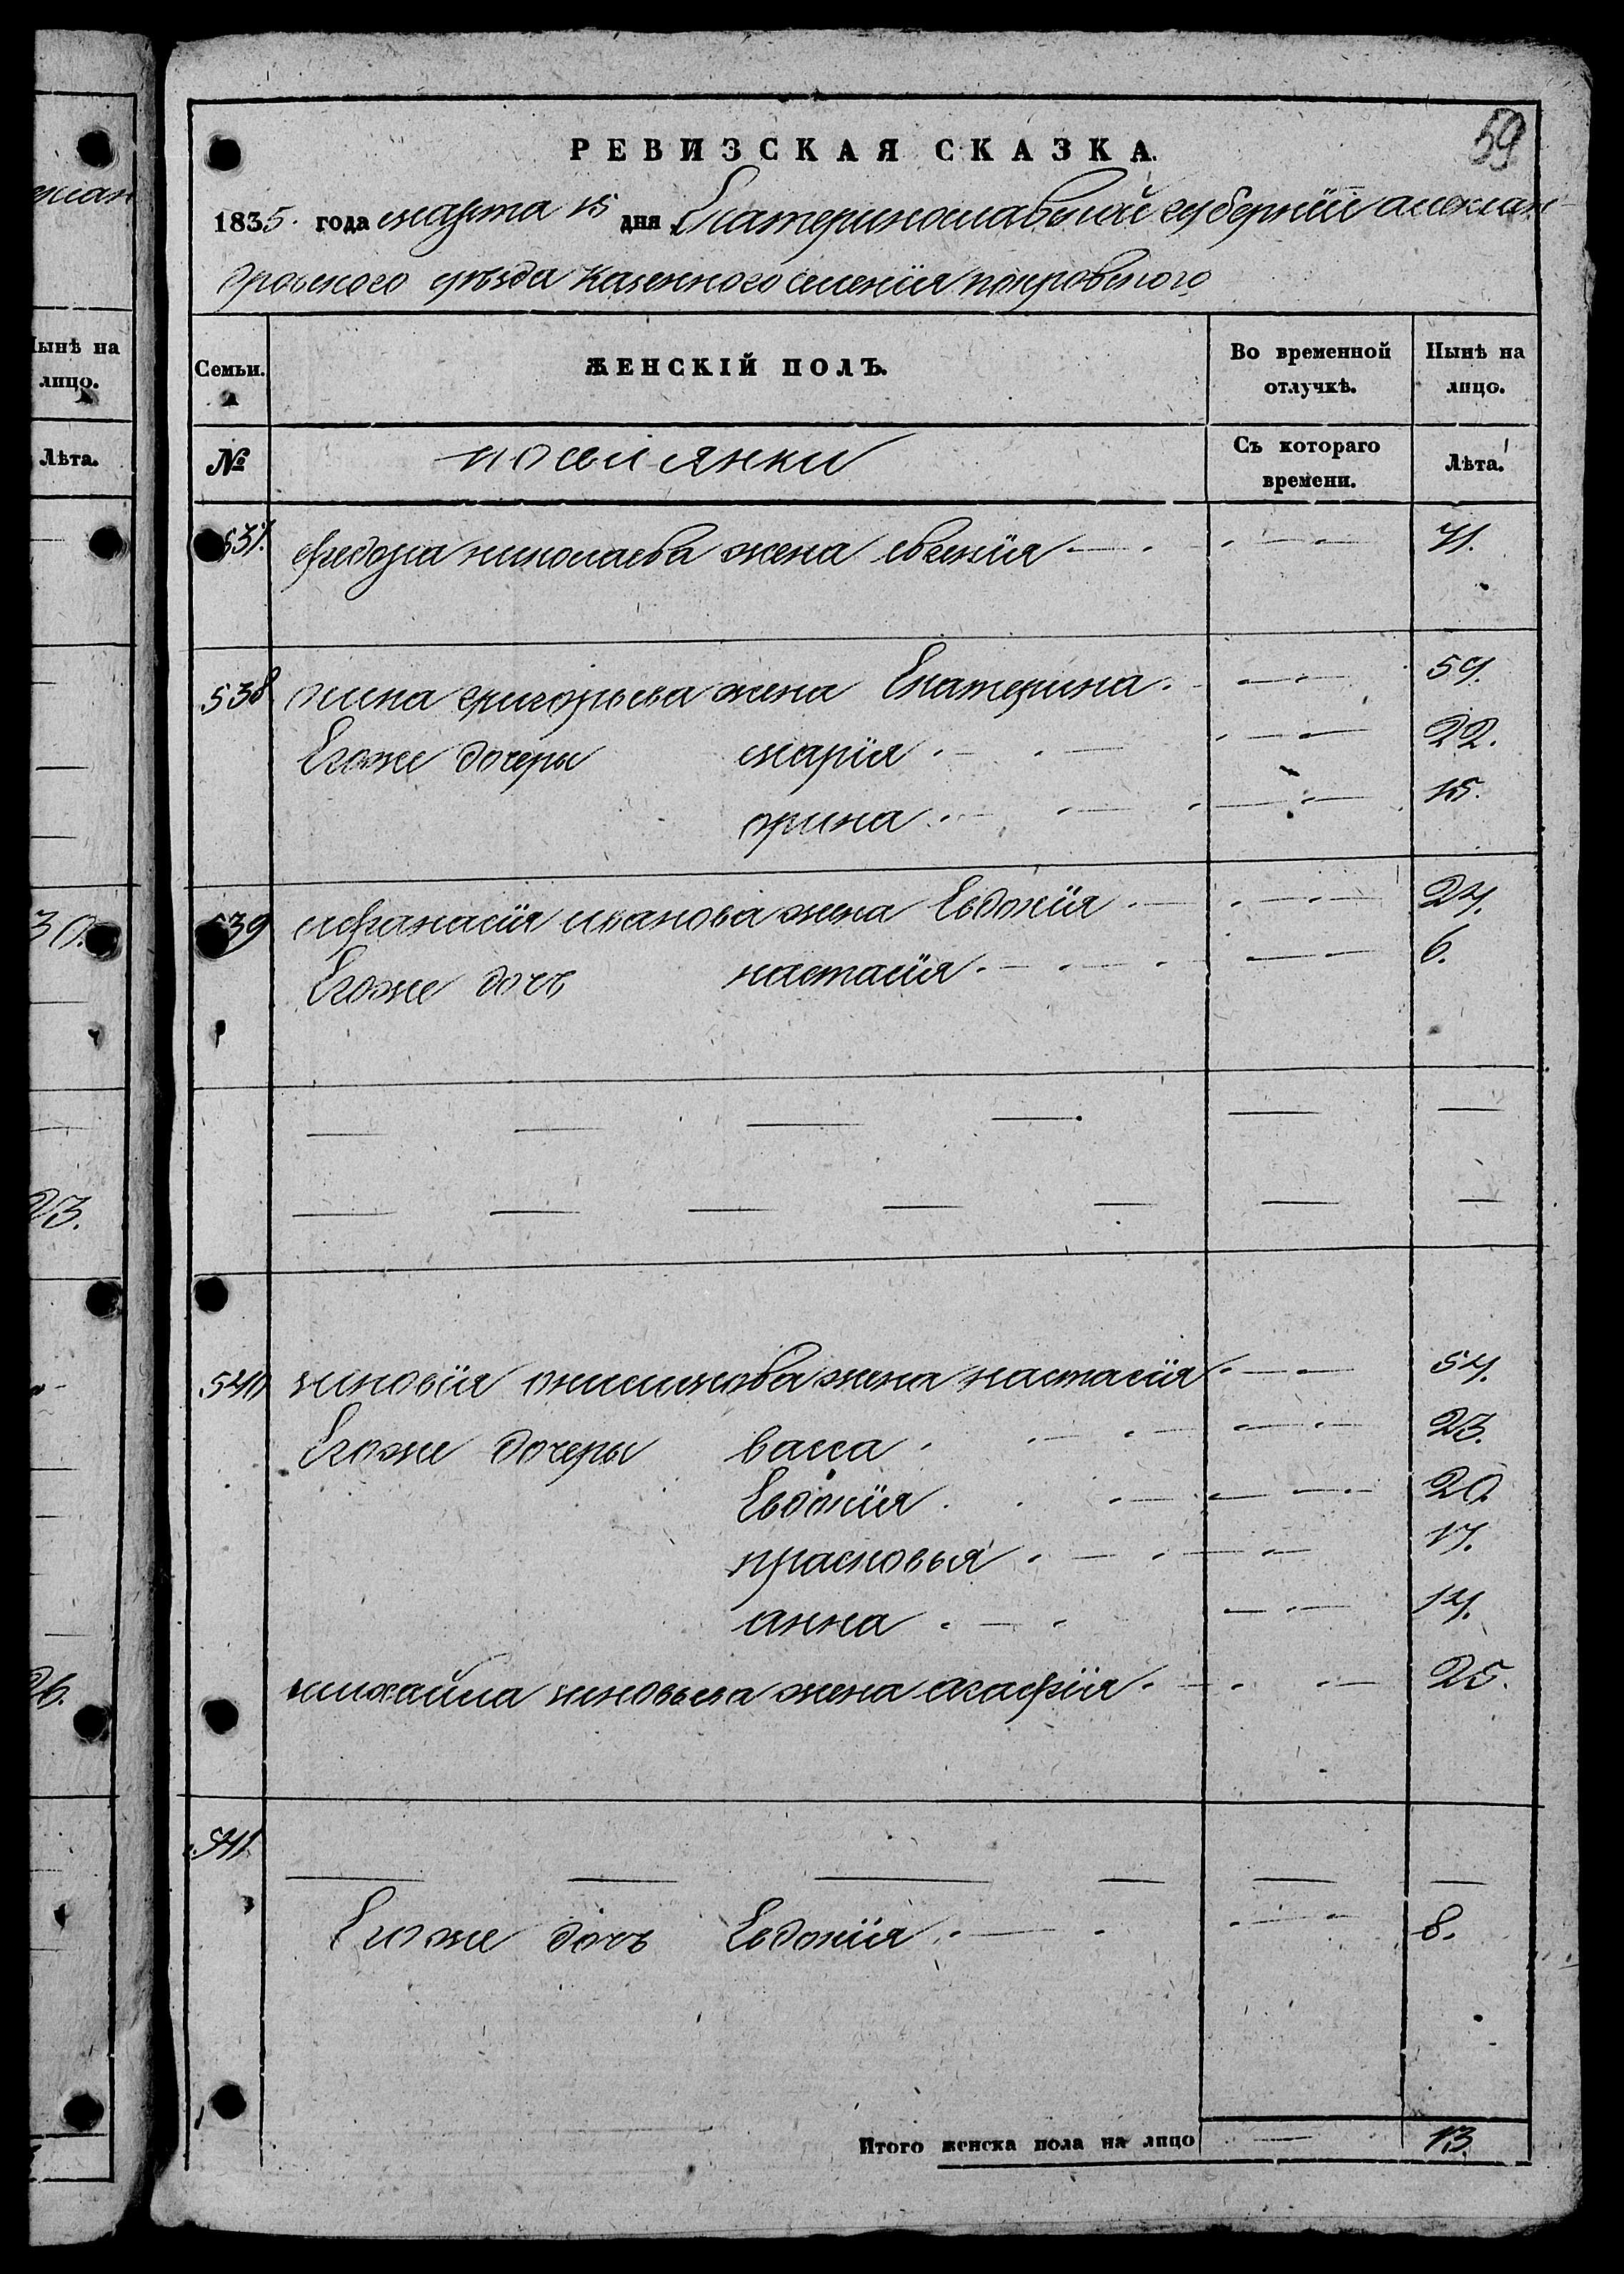 59
РЕВИЗСКАЯ СКАЗКА.
1835. года марта 15 дня Екатеринославской губернїи алексан
дровского уѣзда казенного селенїя покровского
Семьи. ЖЕНСКІЙ ПОЛЪ. Во временной отлучкѣ. Нынѣ на лицо.
№ поселянки Съ котораго времени. Лѣта.
537. федора николаева жена евгенїя 71.
538 якима григорьева жена Екатерина 59.
Егоже дочеры марїя 22.
орина 15.
539 афанасїя иванова жена Евдокїя 27.
Егоже дочь настасїя 6.
540 зиновїя онисимова жена настасїя 54.
Егоже дочеры васса 23.
Евдокїя 20.
прасковья 17.
анна 14.
михайла зиновьева жена агафїя 25.
541
Егоже дочь Евдокїя 8.
Итого женска пола на лицо 13.
Нынѣ на
лицо.
Лѣта.
30.
23.
26.